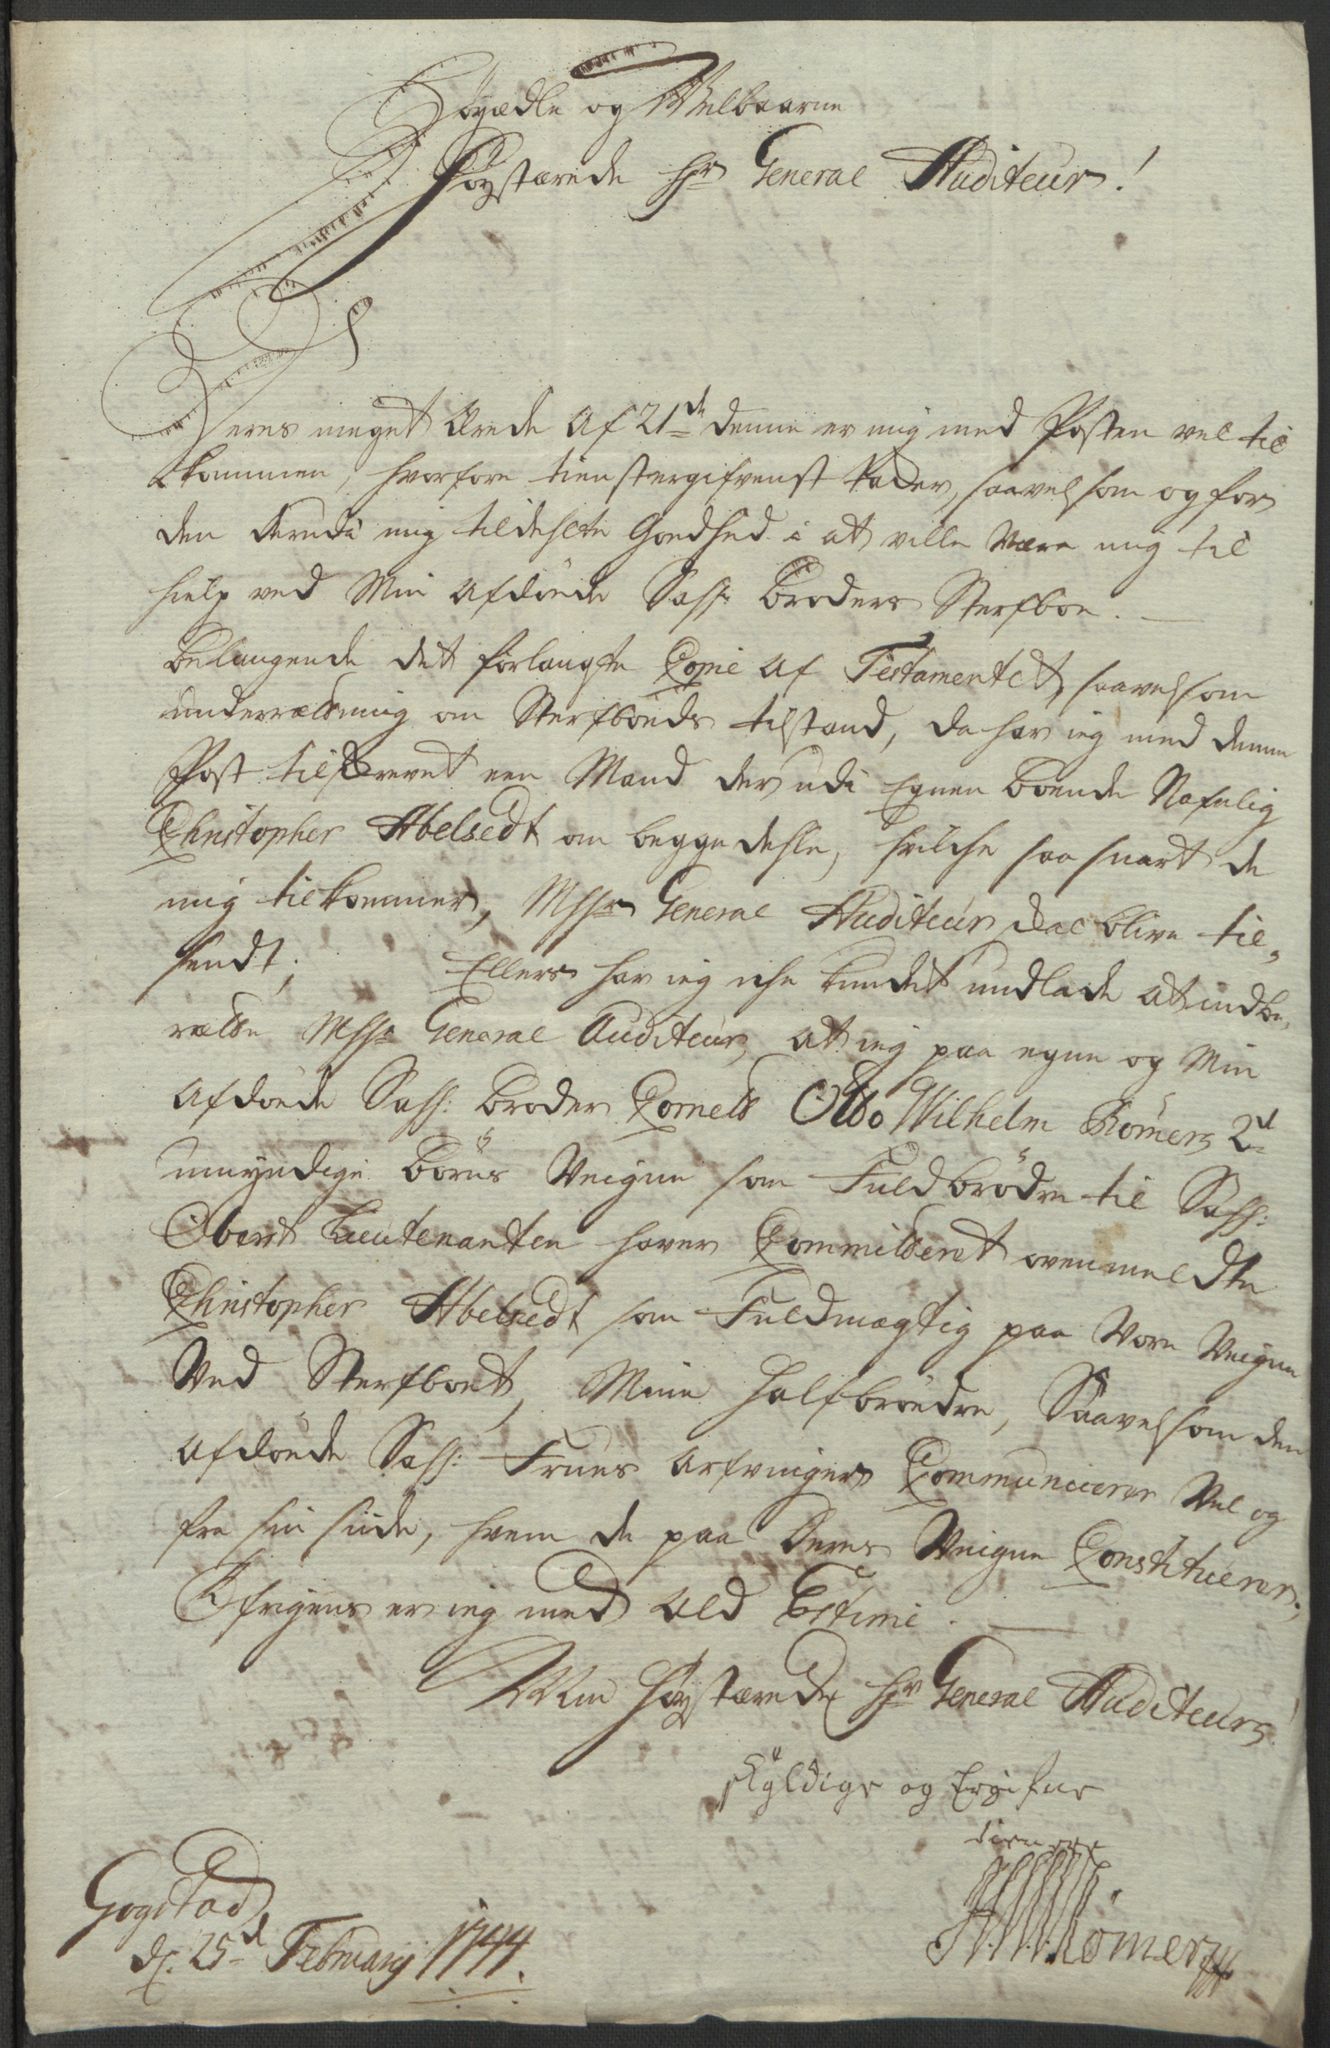 Høyædle og Welbaarne
Høystærede Hr General Auditeur!
Deres meget Ærede Af 21de denne er mig med Posten vel til
kommen, hvorfore tienstergifvenst takker, saavelsom og for
den derudi mig tildeelte Goedhed i at ville være mig til
hielp ved Min Afdøde Sal: Broders Sterfboe.
Belangende det forlangte Copie Af Testamentet, saavelsom
underrætning om Sterfboeds tilstand, da har ieg med denne
Post tilskrevet een Mand der udi Egnen boende Nafnlig
Christopher Abelsedt om begge dehle, hvilche saa snart de
mig tilkommer, Hr General Auditeur skal blive til-
sendt; Ellers har ieg iche kundet undlade at indbe-
rætte Hr General Auditeur, at ieg paa egne og Min
Afdøde Sal: Broder Cornett Otto Wilhelm Rømers 2de
umyndige Børns Veigne som Fuldbrødre til Sal:
Oberst Lieutenanten haver Committeret ovenmeldte
Christopher Abelsedt som Fuldmægtig paa Vore Veigne
Ved Sterfboet, Mine Halfbrødre, Saavelsom den
Afdøde Sal: Frues Arfvinger Communicerer Vel og
fra sin siide, hvem de paa Deres Veigne Constituerer;
Øfrigens er ieg med Ald Estime.
Min Høystærede Hr General Auditeurs
skyldige og Ergifne
tienere
Rømer
Gogstad
d. 25de February 1744.